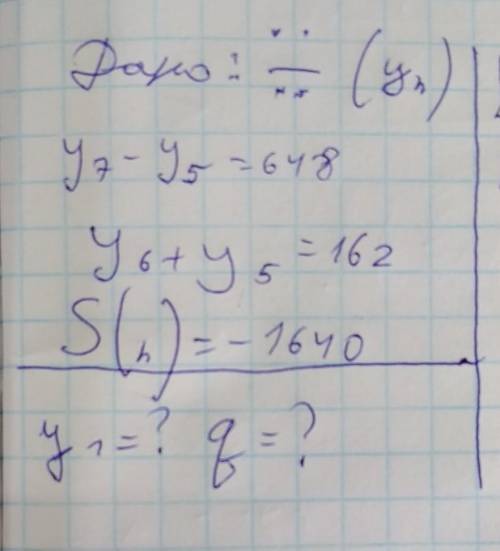 Дано: ∺ (yₙ)
y₇ - y₅ = 648
y₆ + y₅ = 162
S(n) = -1640
y₁ = ? q = ?